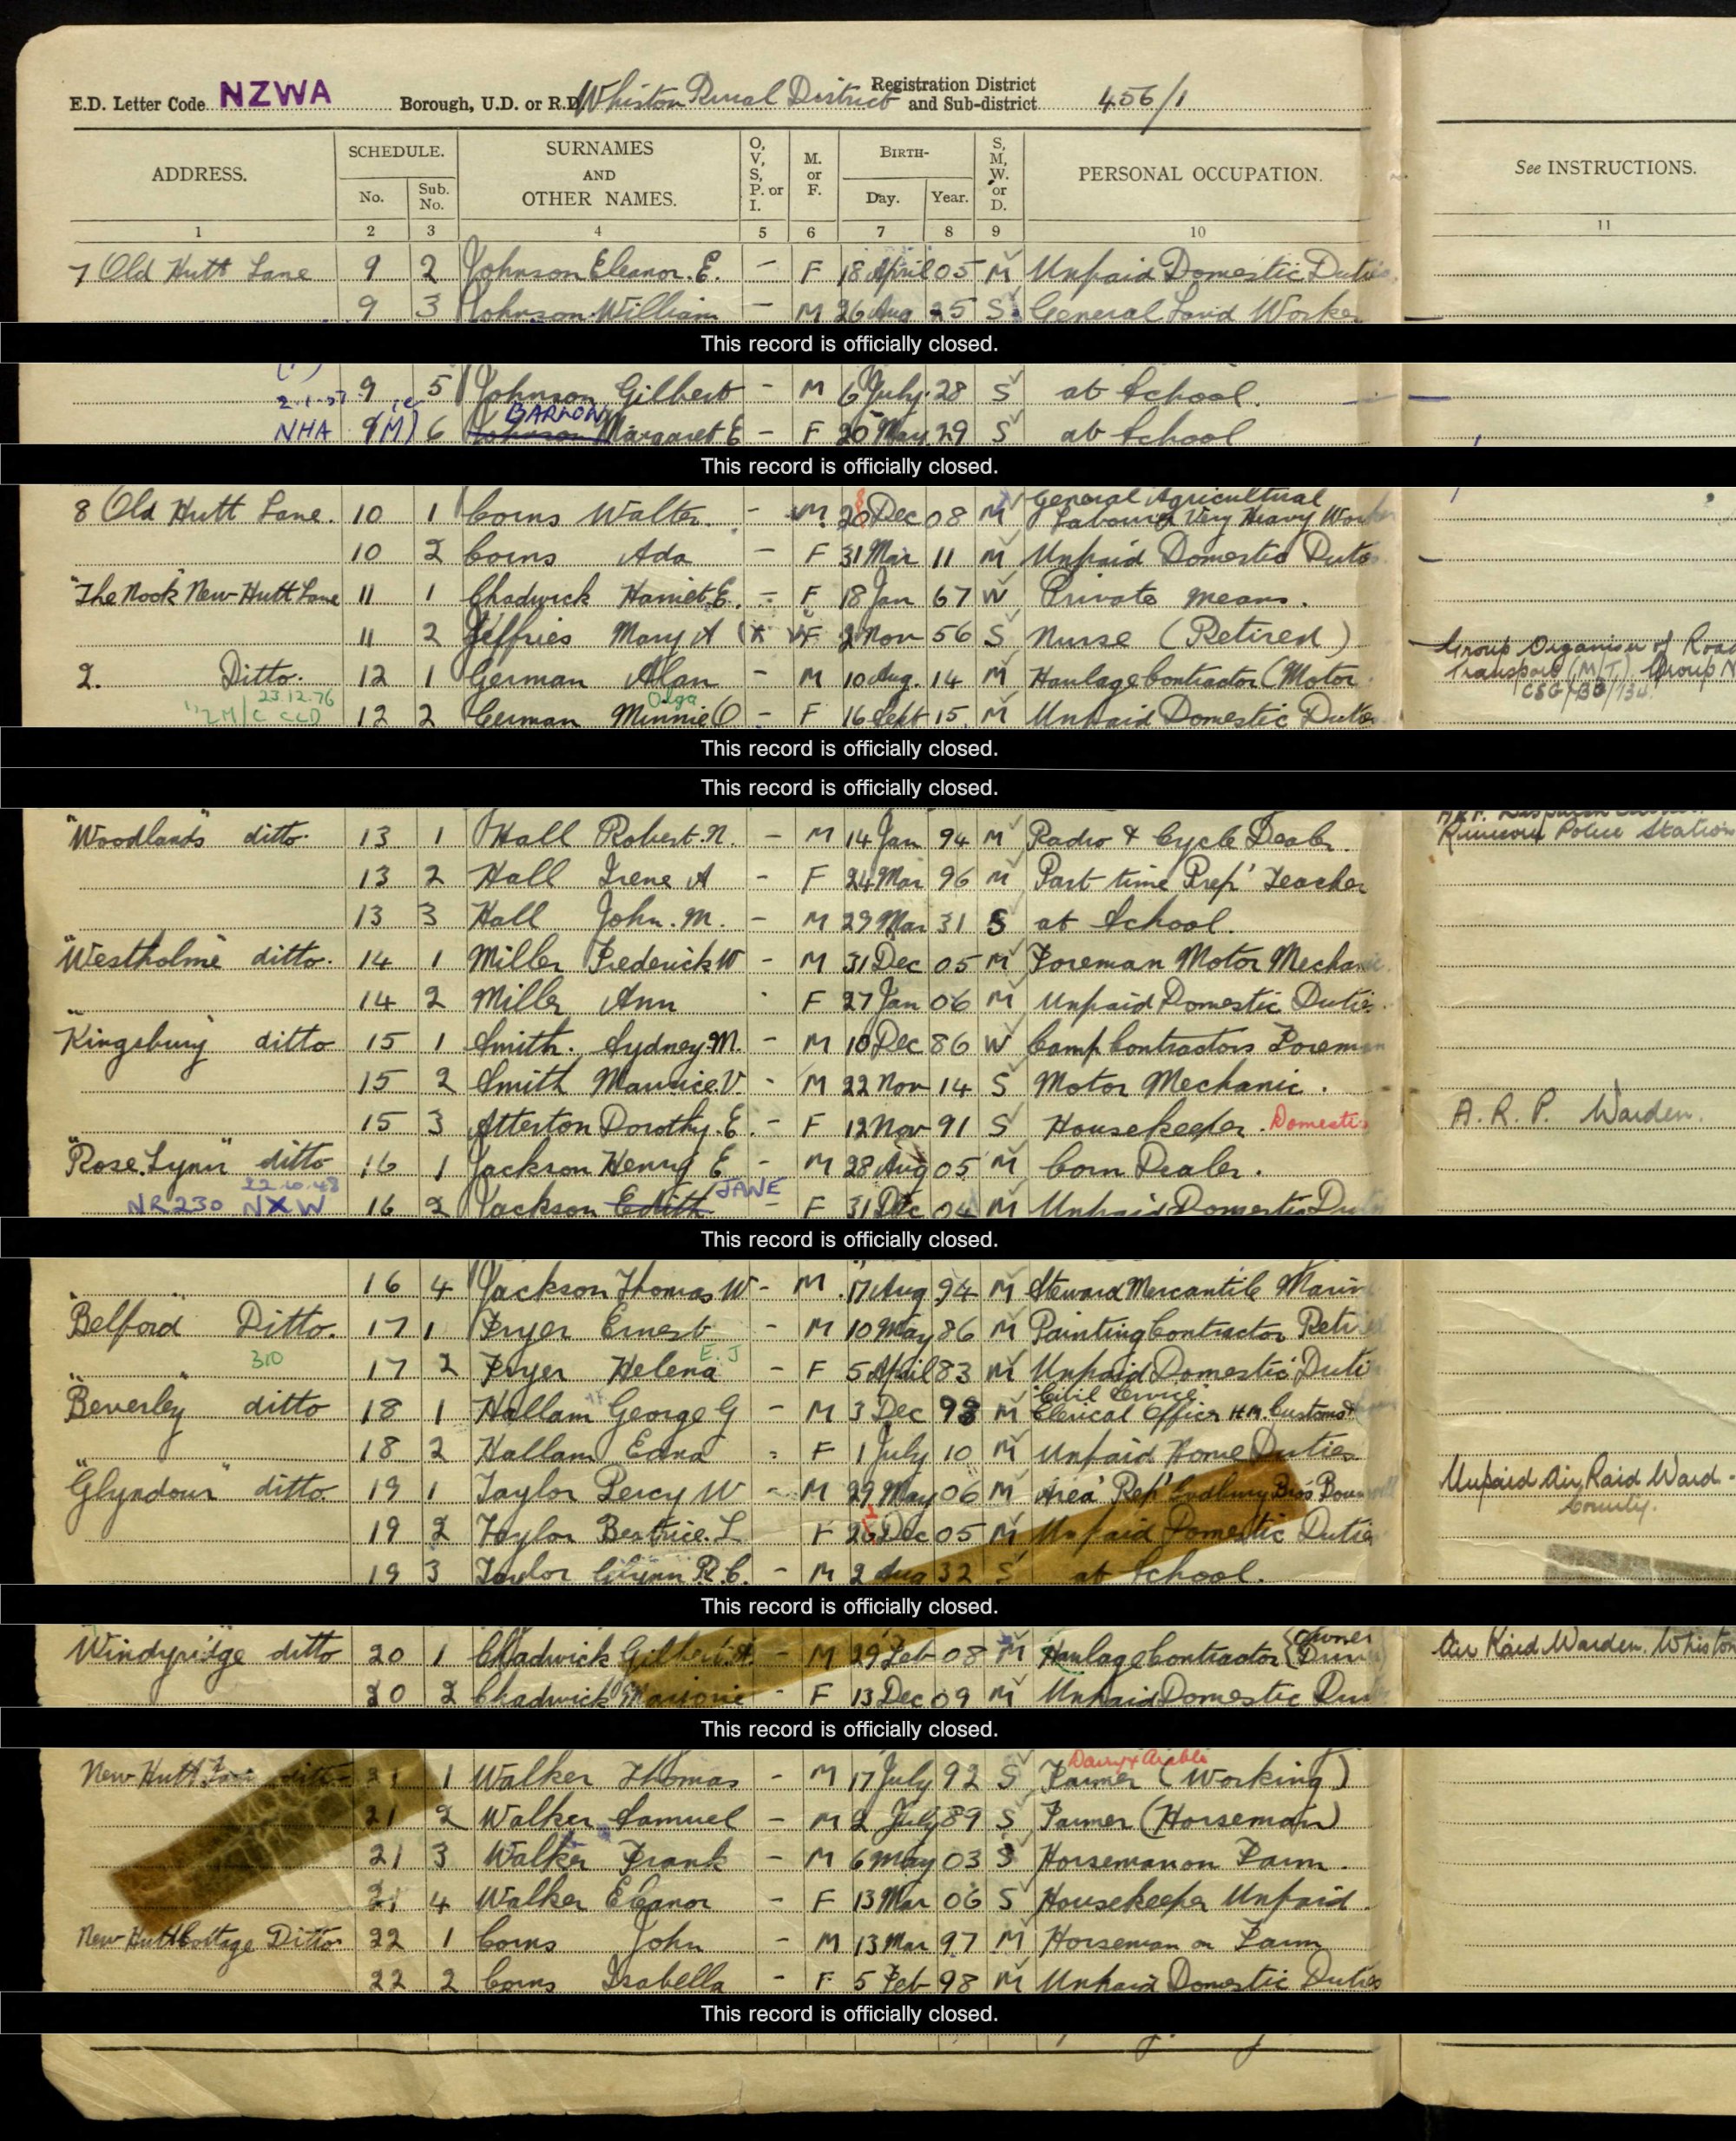 E.D. Letter Code NZWA Borough, U.D. or R.D. Whiston Rural District Registration District and Sub-district 456/1
ADDRESS. SCHEDULE. No. Sub. No. SURNAMES AND OTHER NAMES. O, V, S, P. or I. M. or F. BIRTH- Day. Year. S, M, W. or D. PERSONAL OCCUPATION. See INSTRUCTIONS.
1 2 3 4 5 6 7 8 9 10 11
7 Old Hutt Lane 9 2 Johnson Eleanor. E. – F 18 April 05 M Unpaid Domestic Duties
9 3 Johnson William – M 26 Aug 25 S General Land Worker
This record is officially closed.
9 5 Johnson Gilbert – M 6 July 28 S at School.
NHA 9 (M) 6 Johnson BARLOW Margaret E – F 20 May 29 S at School
This record is officially closed.
8 Old Hutt Lane. 10 1 Corns Walter. – M 20 Dec 08 M General Agricultural Labourer Very Heavy Worker
10 2 Corns Ada – F 31 Mar 11 M Unpaid Domestic Duties
"The Nook" New Hutt Lane 11 1 Chadwick Harriet. E. – F 18 Jan 67 W Private means.
11 2 Jeffries Mary A F 2 Nov 56 S Nurse (Retired)
2. Ditto. 12 1 German Alan – M 10 Aug. 14 M Haulage Contractor (Motor Group Organiser of Road Transport (M/T) Group N
23.12.76 CCD 12 2 German Minnie O Olga – F 16 Sept 15. M Unpaid Domestic Duties
This record is officially closed.
This record is officially closed.
"Woodlands" ditto. 13 1 Hall Robert. N. – M 14 Jan 94 M Radio & Cycle Dealer. Police Station
13 2 Hall Irene A – F 24 Mar 96 M Part time Prep' Teacher
13 3 Hall John. M. – M 29 Mar 31 S at School.
"Westholme" ditto. 14 1 Miller Frederick W – M 31 Dec 05 M Foreman Motor Mechanic
14 2 Miller Ann F 27 Jan 06 M Unpaid Domestic Duties.
"Kingsbury" ditto 15 1 Smith. Sydney. M. – M 10 Dec 86 W Camp Contractors Foreman
15 2 Smith Maurice. V. – M 22 Nov 14 S Motor Mechanic.
15 3 Atterton Dorothy. E. – F 12 Nov 91 S Housekeeper. Domestic A. R. P. Warden.
"Rose Lynn" ditto 16 1 Jackson Henry E – M 28 Aug 05 M Corn Dealer.
22.10.48 NR 230 NXW 16 2 Jackson Edith JANE – F 31 Dec 04 M Unpaid Domestic Duties
This record is officially closed.
16 4 Jackson Thomas W – M. 17 Aug 94 M Steward Mercantile Marine
"Belford" Ditto. 17 1 Fryer Ernest – M 10 May 86 M Painting Contractor Retired
3RD 17 2 Fryer Helena E. J – F 5 April 83 M Unpaid Domestic Duties
"Beverley" ditto 18 1 Hallam George G – M 3 Dec 98 M "Civil Service" Clerical Officer H.M. Customs
18 2 Hallam Edna F 1 July 10 M Unpaid Home Duties
"Glyndour" ditto. 19 1 Taylor Percy W – M 29 May 06 M Area Rep' Cadbury Bros Bournville Unpaid Air Raid Ward- County.
19 2 Taylor Beatrice. L F Dec 05 M Unpaid Domestic Duties
19 3 Taylor Glynn R. C. – M 2 Aug 32 S at School.
This record is officially closed.
Windyridge ditto 20 1 Chadwick Gilbert. A. – M 29 Feb 08 M Haulage Contractor (Owner Driver) Air Raid Warden. Whiston
20 2 Chadwick Marjorie – F 13 Dec 09 M Unpaid Domestic Duties
This record is officially closed.
New Hutt Farm ditto 21 1 Walker Thomas – M 17 July 92 S Dairy & Arable Farmer (Working)
21 2 Walker Samuel – M 2 July 89 S Farmer (Horseman)
21 3 Walker Frank – M 6 May 03 S Horseman on Farm.
21 4 Walker Eleanor – F 13 Mar 06 S Housekeeper Unpaid.
New Hutt Cottage Ditto 22 1 Corns John – M 13 Mar 97 M Horseman on Farm
22 2 Corns Isabella – F 5 Feb 98 M Unpaid Domestic Duties
This record is officially closed.